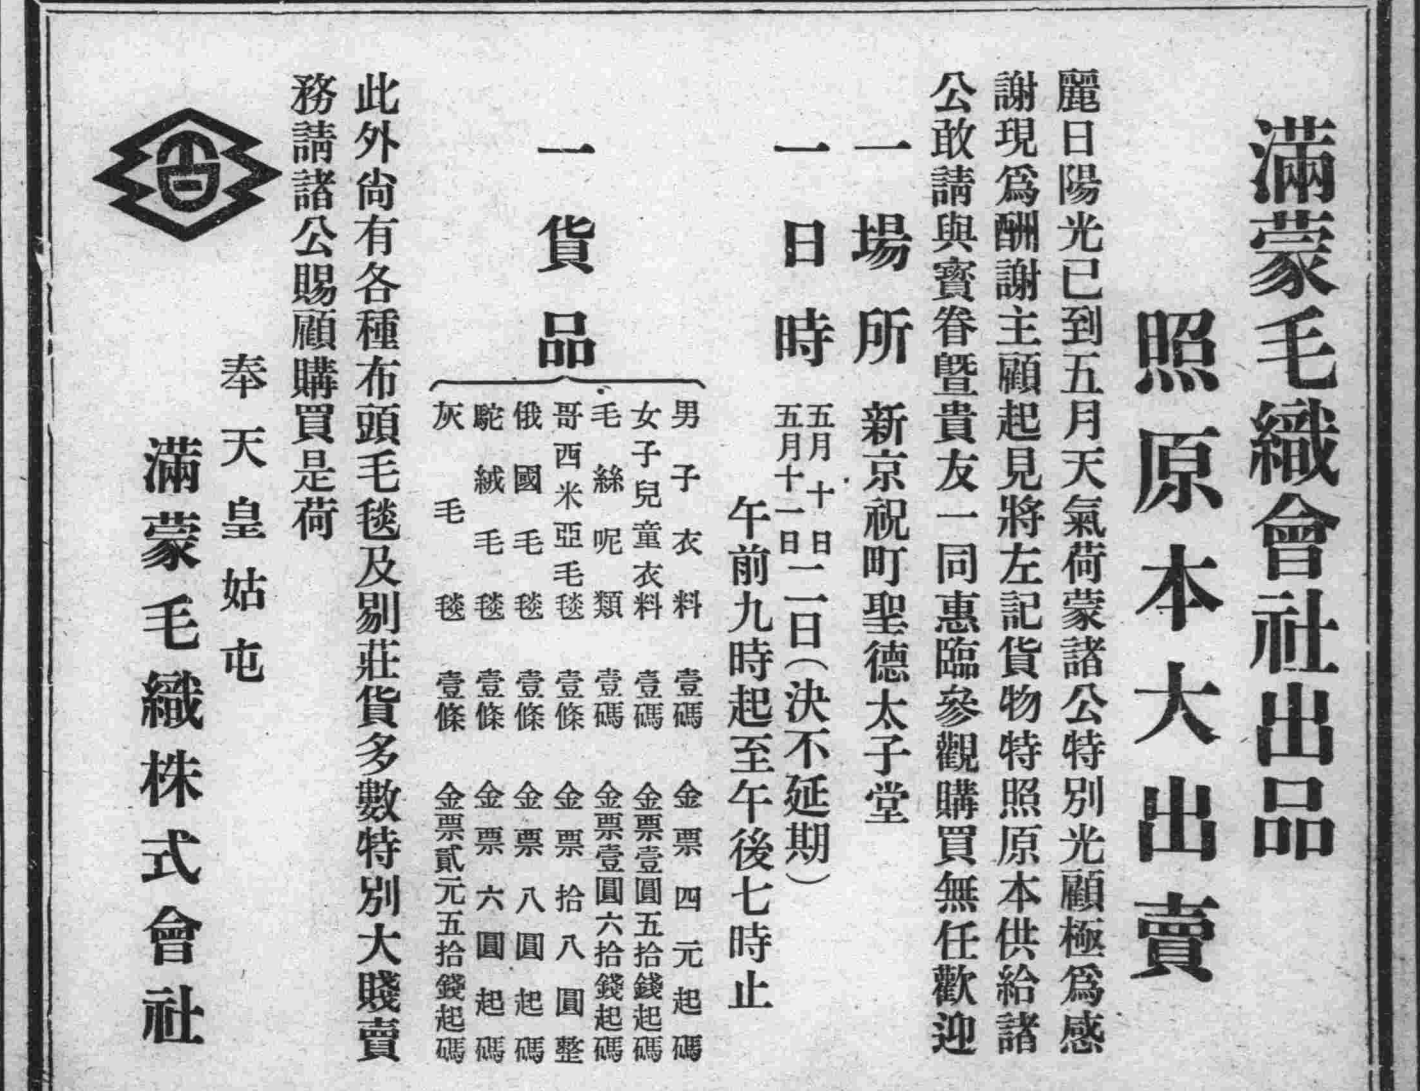 滿蒙毛織會社出品
照原本大出賣
麗日陽光已到五月天氣荷蒙諸公特別光顧極爲感
謝現爲酬謝主顧起見將左記貨物特照原本供給諸
公敢請與寳眷曁貴友一同惠臨參觀購買無任歡迎
一場所 新京祝町聖德太子堂
一日時 五月十日
五月十一日
二日(決不延期)
午前九時起至午後七時止
一貨品
男子衣料 壹碼 金票四元起碼
女子兒童衣料 壹碼 金票壹圓五拾錢起碼
毛絲呢類 壹碼 金票壹圓六拾錢起碼
哥西米亞毛毯 壹條 金票拾八圓整
俄國毛毯 壹條 金票八圓起碼
駝絨毛毯 壹條 金票六圓起碼
灰毛毯 壹條 金票貳元五拾錢起碼
此外尙有各種布頭毛毯及剔莊貨多數特別大賤賣
務請諸公賜顧購買是荷
奉天皇姑屯
滿蒙毛織株式會社